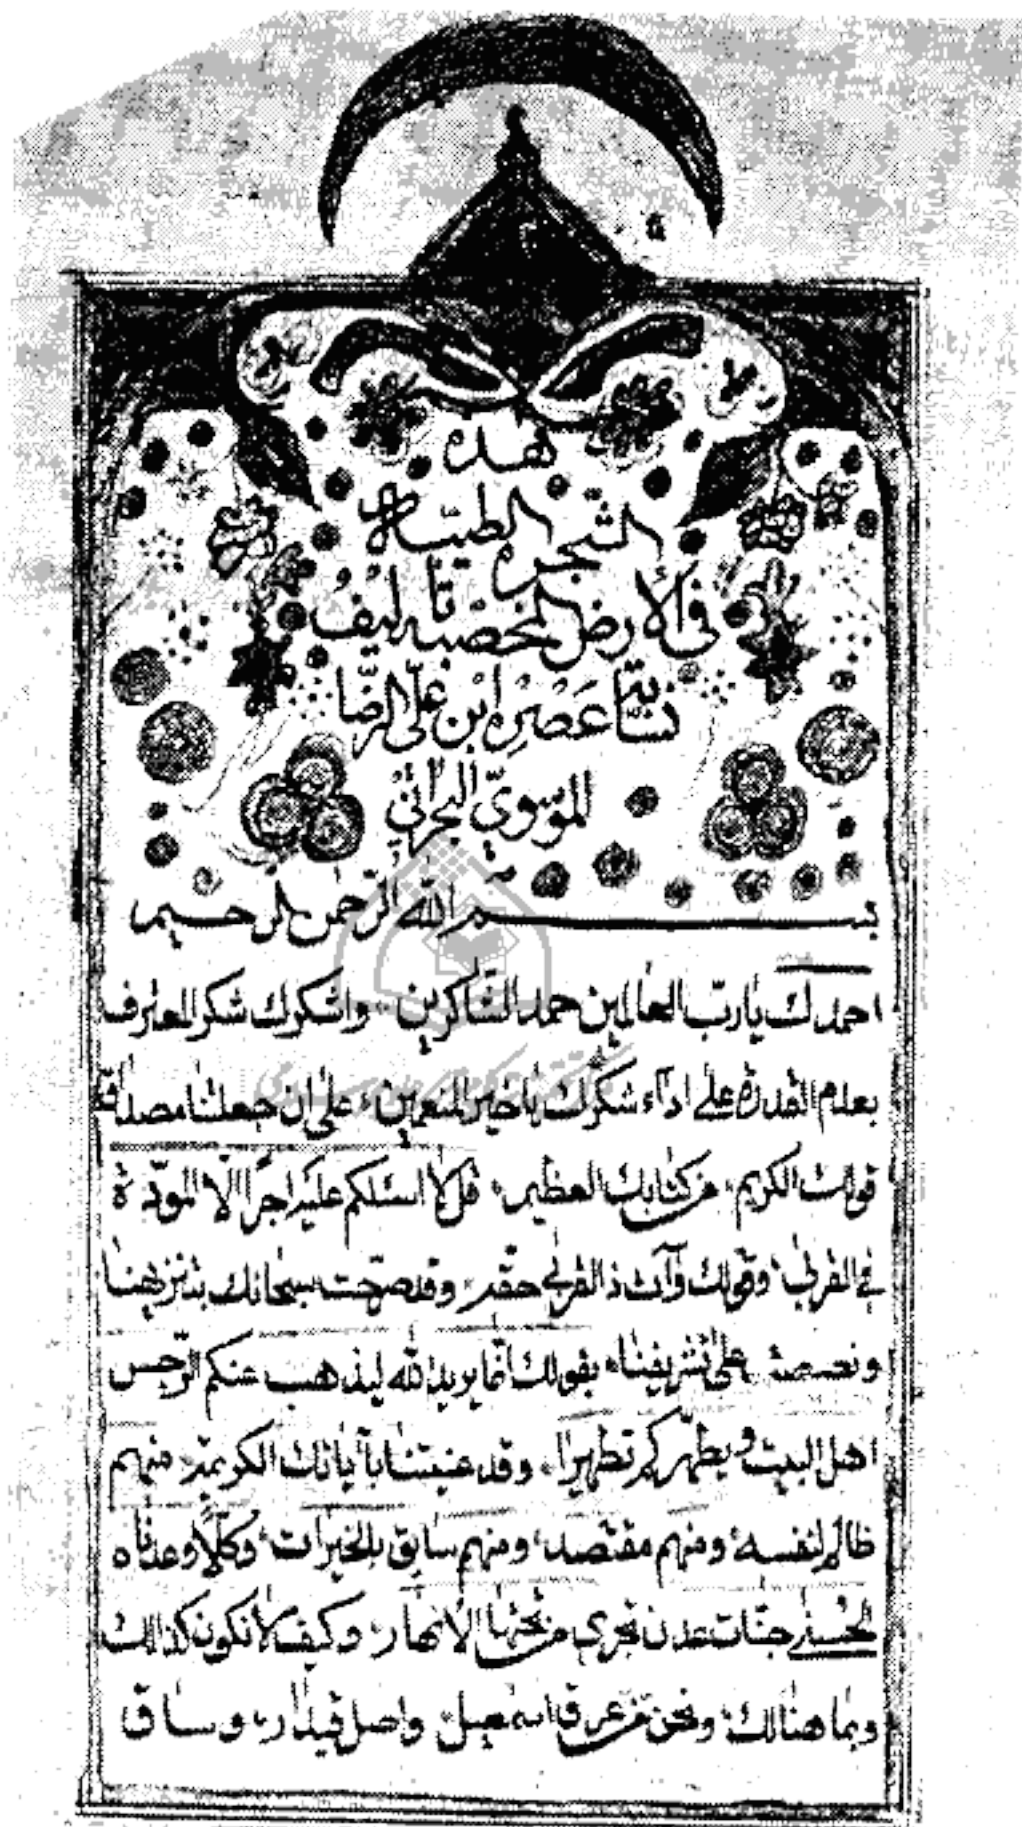 هذه
الشجره الطيبة
في الارض المخصبه تاليف
نسّابة عَصْرِهِ ابْن علّي الرضَّا
الموسويّ البحراني
بسم الله الرحمن الرحيم
احمدك يارب العالمين حمد الشاكرين، واشكرك شكر المعترف
بعدم القدرة على اداء شكرك يا خير المنعمين، على ان جعلتنا مصداق
قولك الكريم، من كتابك العظيم، قل لا اسئلكم عليه اجرًا الّا المودّة
في القربى، وقولك وآت ذا القربى حقه، وقد صرّحت سبحانك بتنزيهنا
ونصصت على تشريفنا، بقولك انّما يريد الله ليذهب عنكم الرّجس
اهل البيت ويطهّركم تطهيرا، وقد عنيتنا بآياتك الكريمة، فمنهم
ظالم لنفسه، ومنهم مقتصد، ومنهم سابق بالخيرات، وكلًّا وعدناه
الحسنى جنّات عدن تجري من تحتها الانهار، وكيف لا نكون كذلك
وبما هنالك، ونحن من عرق اسمعيل، واصل قيدار، وساق